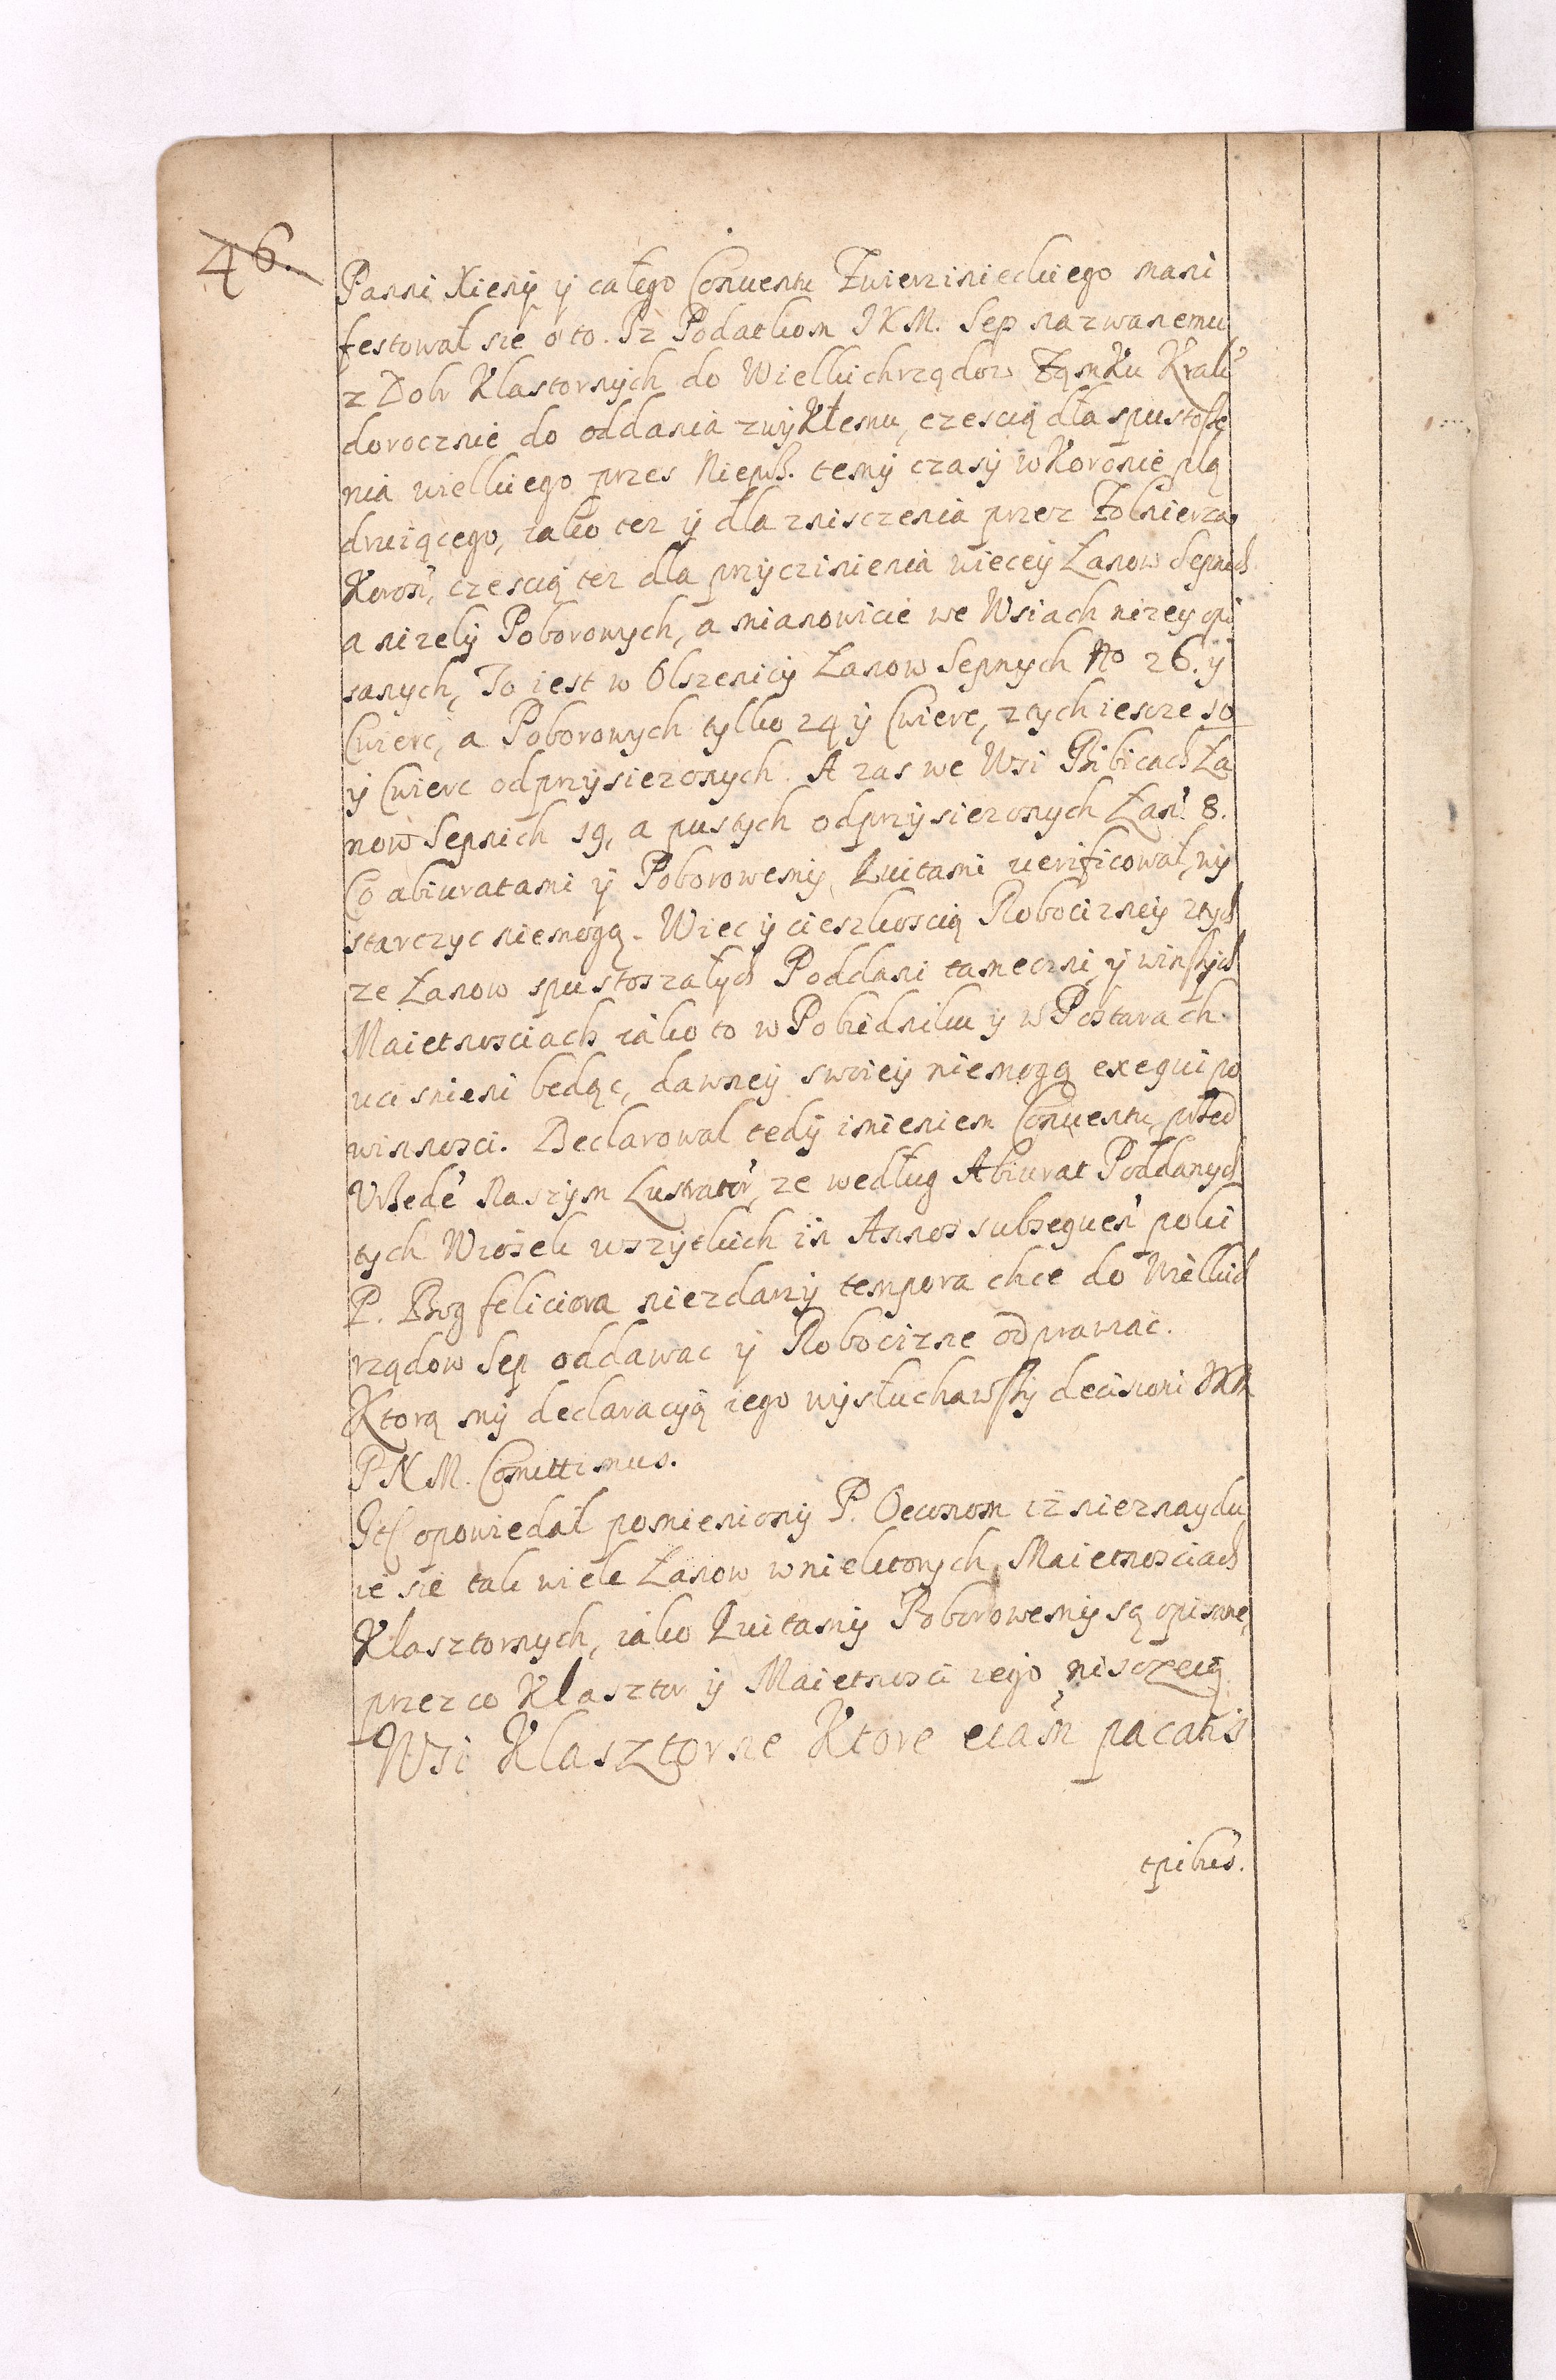 46.
Panni Xieny y całego Conuentu Zwierzinieckiego mani
festował sie o to. Iz Podatkom JKM. Sep nazwanemu
z Dobr Klastornych do Wielkichrządow Zamku Krak
dorocznie do oddania zwykłemu, czescią dla spustosze
nia wielkiego przes Niepß. temy czasy w Koronie plą
druiącego, iako tez y dla zniscżenia przez Zołnierza
Koron, czescią tez dla przyczinienia wiecey Łanow Sepnich
a nizely Poborowych, a mianowicie we Wsiach nizey opi
sanych, To iest w Olszenicy Łanow Sepnych No 26. y
Cwierc, a Poborowych tylko 24 y Cwierc, z tych iescze 10
y Cwierc odprzysiezonych. A zas we Wsi Bibicach Ła
now Sepnich 19, a pustych odprzysiezonych Łan. 8.
Co abiuratami y Poborowemy Kwitami verificował, wy
starczyc niemogą. Wiec y cieszkoscią Robocizney z tych
ze Łanow spustoszałych Poddani tameczni y winszych
Maietnosciach iako to w Pobiedniku y w Pcstarach
ucisnieni bedąc, dawney swoiey niemogą exequi po
winnosci. Declarowal tedy imieniem Conuentu przed
Urzede Naszym Lustrator, ze według Abiurat Poddanych
tych Wiosek wszytkich in Annos subsequen poki
P. Bog feliciora niezdarzy tempora chce do Wielkich
rządow Sep oddawac y Robocizne odprawiac.
Ktorą my declaracyą iego wysłuchawszy decisioni JKM
PNM. Comittimus.
Jtem opowiedał pomieniony P. Oeconom iz nieznaydu
ie sie tak wiele Łanow w niektorych Maietnosciach
Klasztornych, iako Kwitamy Poborowemy są opisane,
przez co Klasztor y Maietnosci iego nisczeią
Wsi Klasztorne Ktore etiam pacatis
tpibus.